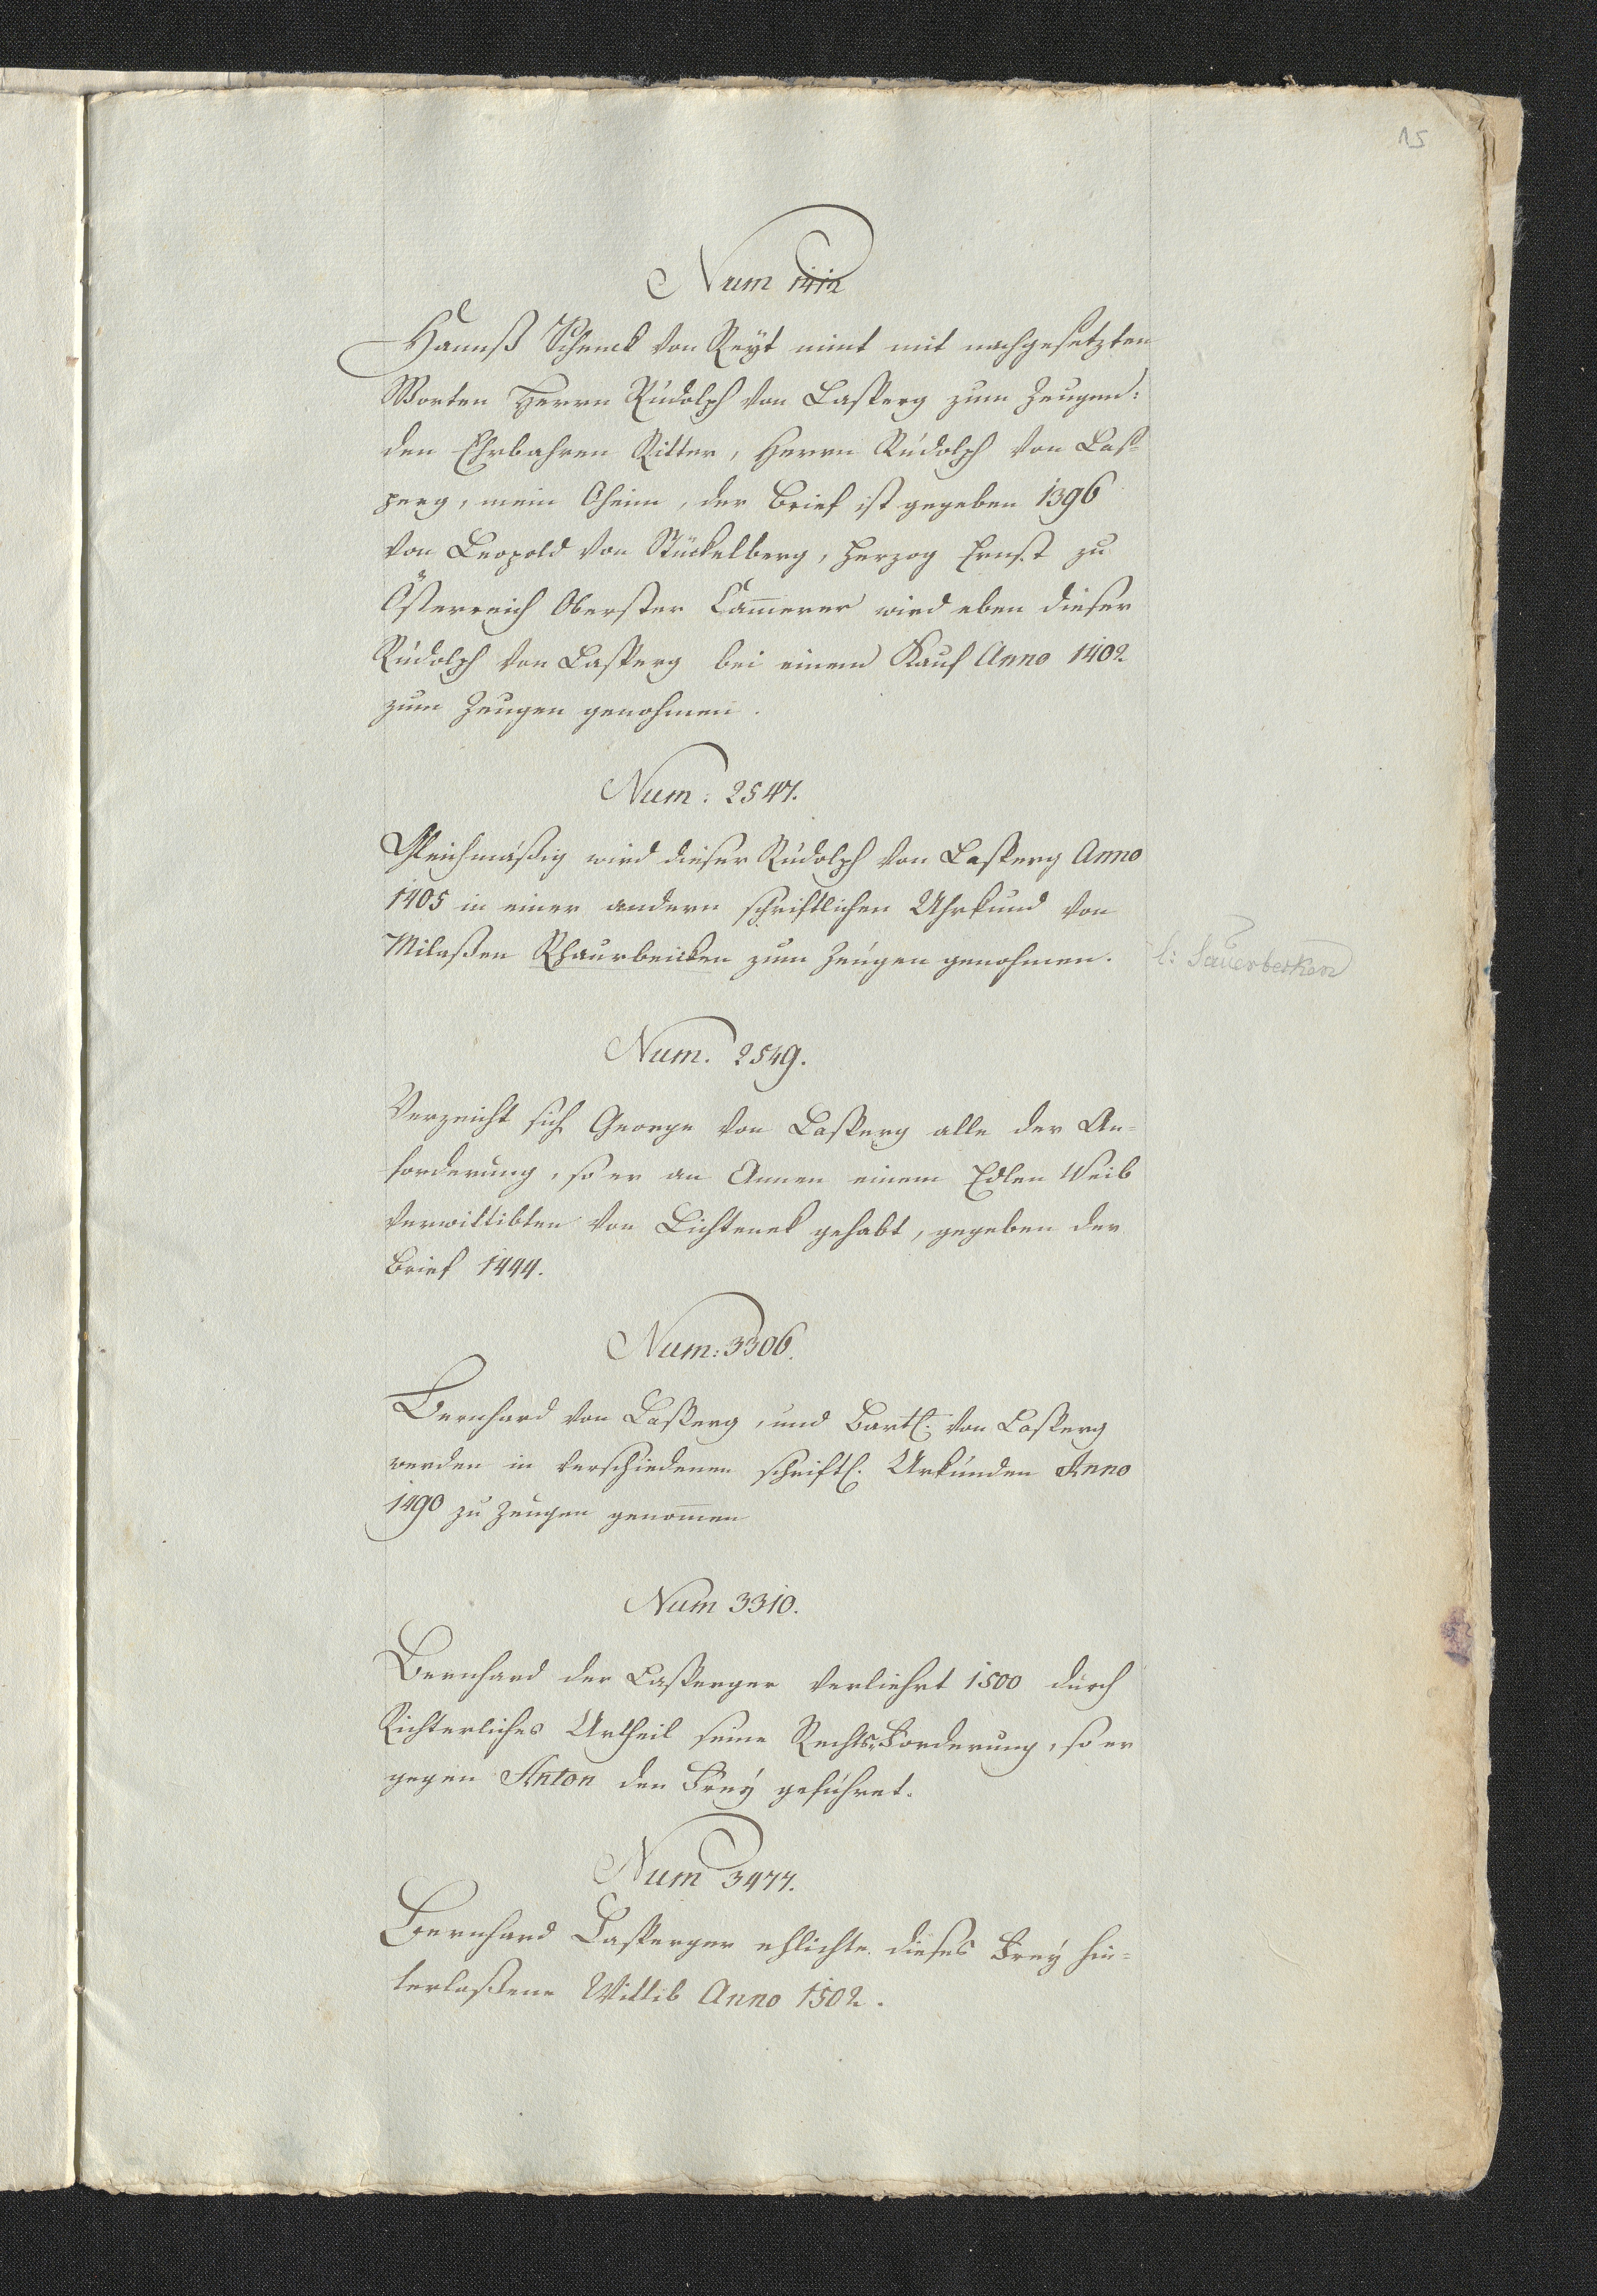 15
Num 1412
Hannß Schenck von Reyt nimt mit nachgesetzten
Worten Herrn Rudolph von Lasperg zum Zeugen:
den Ehrbahren Ritter, Herrn Rudolph von Las-
perg, mein Oheim, der Brief ist gegeben 1396
von Leopold von Stückelberg, Herzog Ernst zu
Österreich Oberster Cam̅erer wird eben dieser
Rudolph von Lasperg bei einem Kauf Anno 1402
zum Zeugen genohmen.
Num: 2547.
Gleichmäßig wird dieser Rudolph von Lasperg Anno
1405 in einer andern schriftlichen Uhrkund von
Milaßen Rhaurbeicken zum Zeugen genohmen.
l: Sauerbecken
Num. 2549.
Verzeicht sich George von Lasperg alle der An-
forderung, so er an Annen einem Edlen Weib
verwittibten von Lichtenek gehabt, gegeben der
Brief 1444.
Num: 3306.
Bernhard von Lasperg, und Bartl. von Lasperg
werden in verschiedenen schriftl. Urkunden Anno
1490 zu Zeugen genom̅en
Num 3310.
Bernhard der Lasperger verliehrt 1500 durch
Richterliches Urtheil seine Rechts-Forderung, so er
gegen Anton den Frey geführet.
Num 3477.
Bernhard Lasperger ehlichte dieses Frey hin-
terlaßene Wittib Anno 1502.